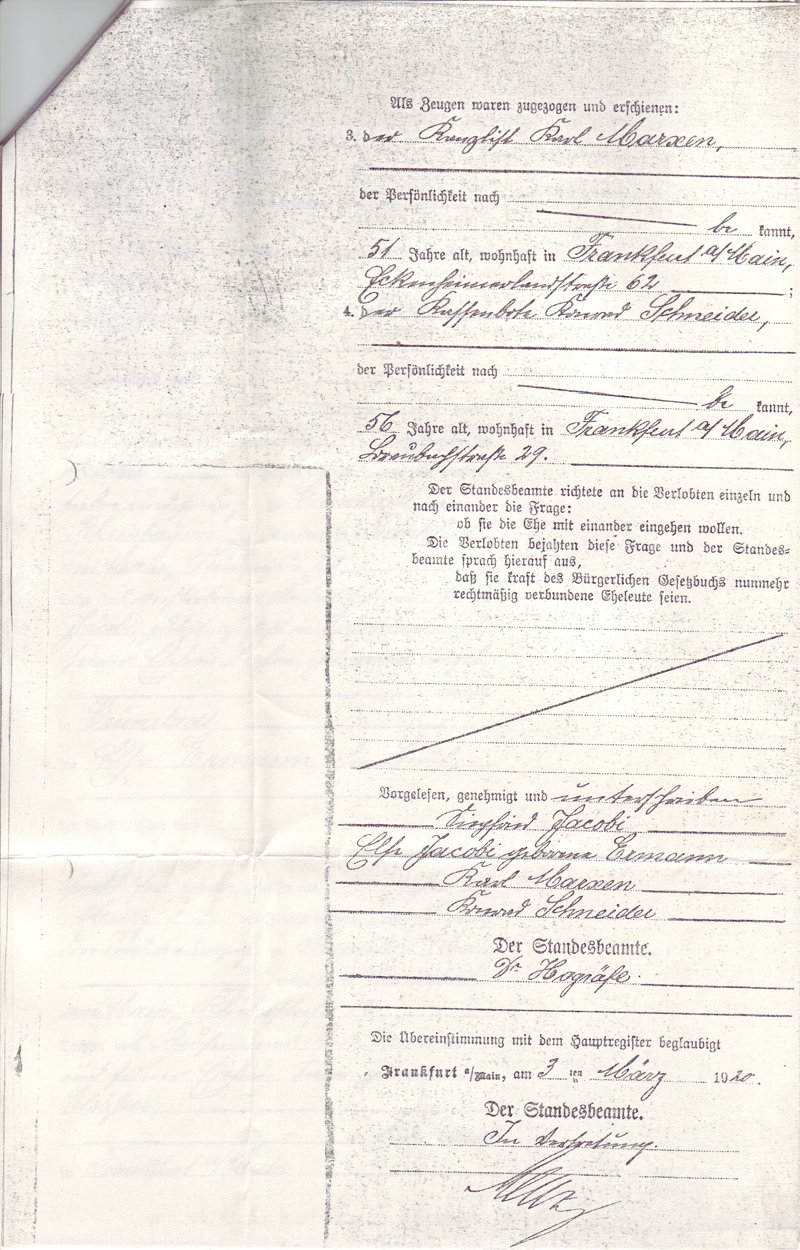 Als Zeugen waren zugezogen und erschienen:
3. der Kanzlist Karl Marxen,
der Persönlichkeit nach
be kannt,
51 Jahre alt, wohnhaft in Frankfurt a/Main,
Eckenheimerlandstraße 62 ;
4. der Kassenbote Konrad Schneider,
der Persönlichkeit nach
be kannt,
56 Jahre alt, wohnhaft in Frankfurt a/Main,
Braubachstraße 29.
Der Standesbeamte richtete an die Verlobten einzeln und
nach einander die Frage:
ob sie die Ehe mit einander eingehen wollen.
Die Verlobten bejahten diese Frage und der Standes-
beamte sprach hierauf aus,
daß sie kraft des Bürgerlichen Gesetzbuchs nunmehr
rechtmäßig verbundene Eheleute seien.
Vorgelesen, genehmigt und unterschrieben
Siegfried Jacobi
Else Jacobi geborene Ermann
Karl Marxen
Konrad Schneider
Der Standesbeamte.
Dr. Hogräfe.
Die Übereinstimmung mit dem Hauptregister beglaubigt
Frankfurt a/Main, am 3 ten März 1920.
Der Standesbeamte.
In Vertretung.